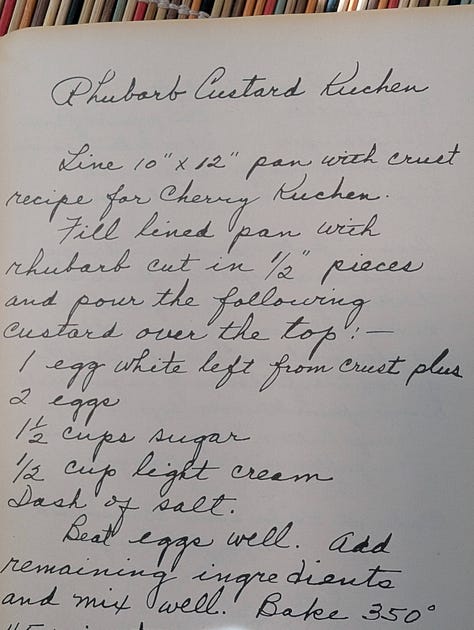 Rhubarb Custard Kuchen
Line 10" x 12" pan with crust
recipe for Cherry Kuchen.
Fill lined pan with
rhubarb cut in 1/2" pieces
and pour the following
custard over the top:—
1 egg white left from crust plus
2 eggs
1 1/2 cups sugar
1/2 cup light cream
Dash of salt.
Beat eggs well. Add
remaining ingredients
and mix well. Bake 350°